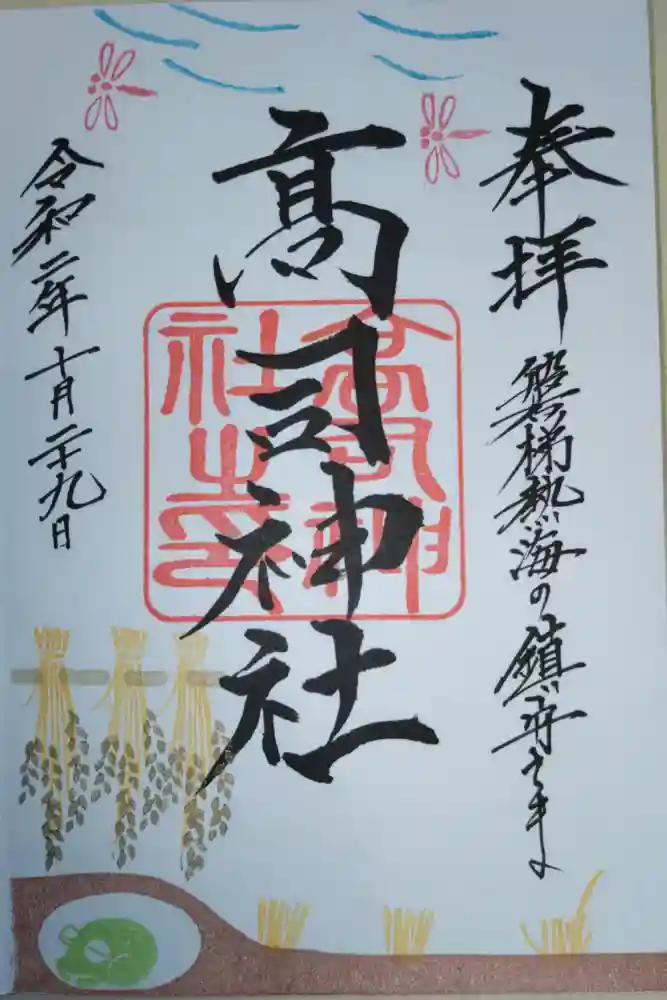 奉拝
磐梯熱海の鎮守さま
高司神社
高司神社之印
令和二年十月二十九日